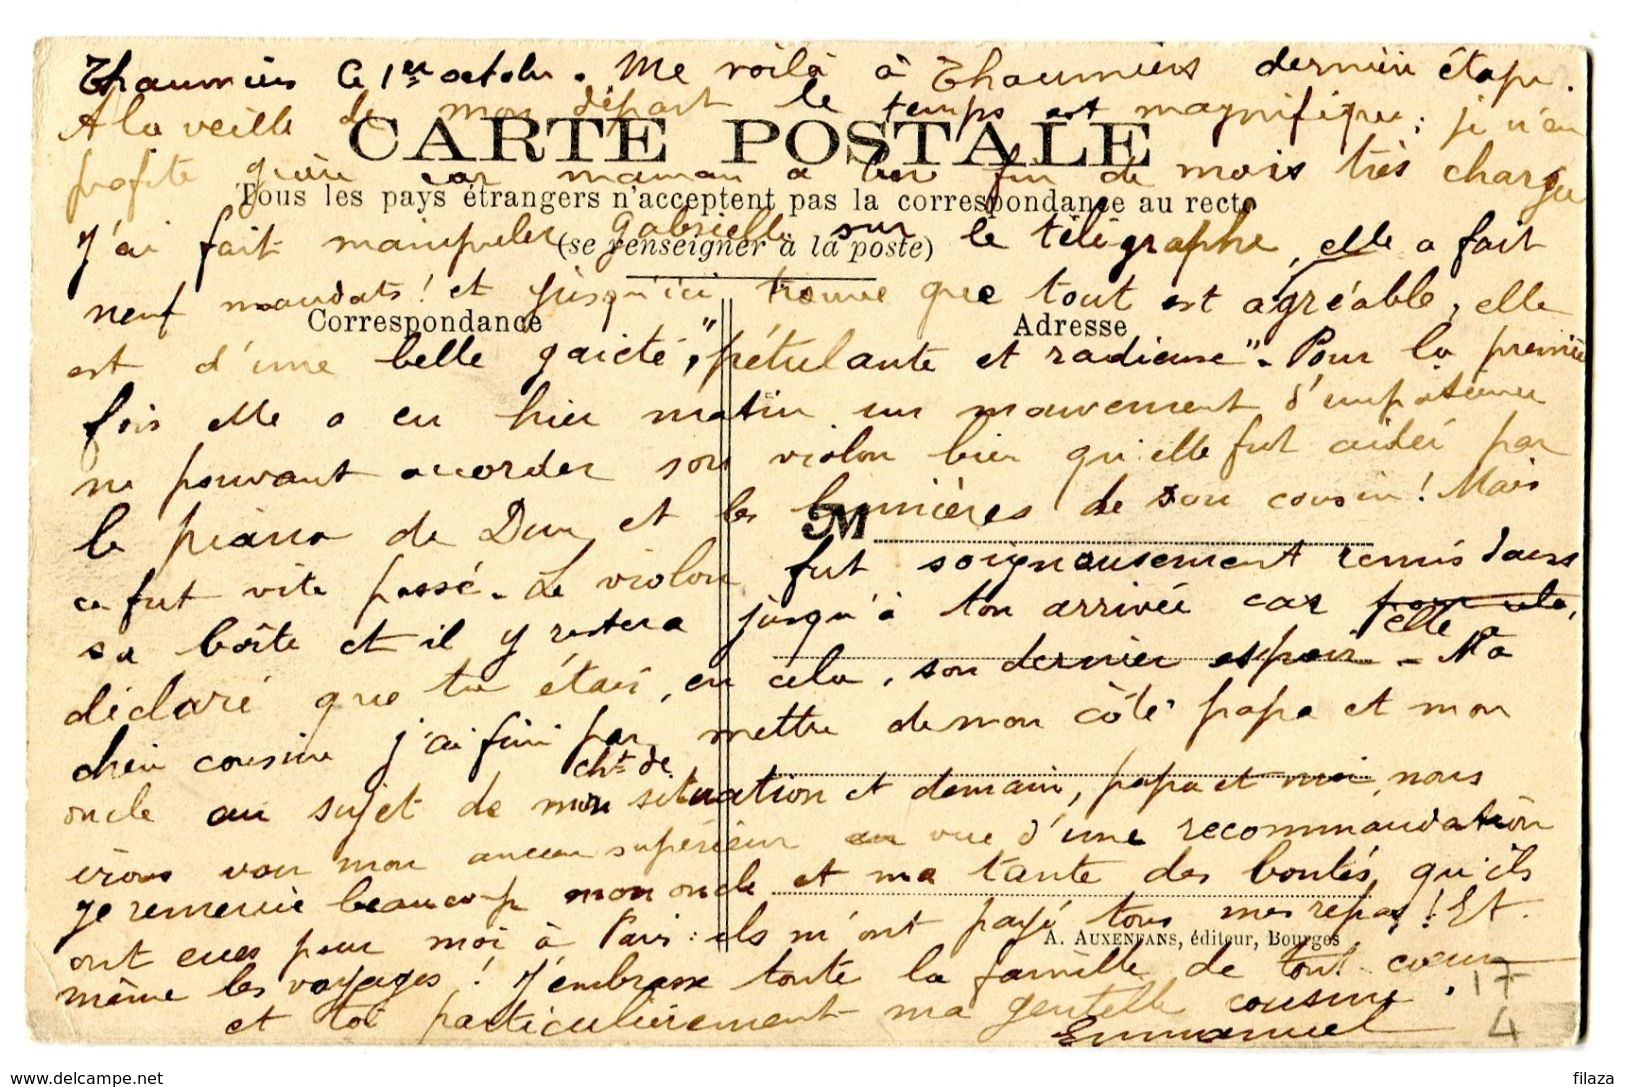 Thaumiers Ce 1er octobre. Me voilà à Thaumiers dernière étape.
A la veille de mon départ le temps est magnifique ; je n'en
CARTE POSTALE
profite guère car maman a une fin de mois très chargée
Tous les pays étrangers n'acceptent pas la correspondance au recto
J'ai fait manipuler Gabrielle sur le télégraphe, elle a fait
(se renseigner à la poste)
neuf mandats ! et jusqu'ici trouve que tout est agréable, elle
Correspondance
Adresse
est d'une belle gaieté, "pétulante et radieuse". Pour la première
fois elle a eu hier matin un mouvement d'impatience
ne pouvant accorder son violon bien qu'elle fut aidée par
le piano de Dun et les lumières de son cousin ! Mais
M
ce fut vite passé. Le violon fut soigneusement remis dans
sa boîte et il y restera jusqu'à ton arrivée car pour cela,
elle a
déclaré que tu étais, en cela, son dernier espoir - Ma
chère cousine j'ai fini par mettre de mon côté papa et mon
cht de
oncle au sujet de mon situation et demain, papa et moi, nous
irons voir mon ancien supérieur en vue d'une recommandation
Je remercie beaucoup mon oncle et ma tante des bontés, qu'ils
ont eues pour moi à Paris : ils m'ont payé tous mes repas ! Et
A. AUXENFANS, éditeur, Bourges
même les voyages ! J'embrasse toute la famille de tout cœur
et toi particulièrement ma gentille cousine.
Emmanuel
17
4
www.delcampe.net
filaza